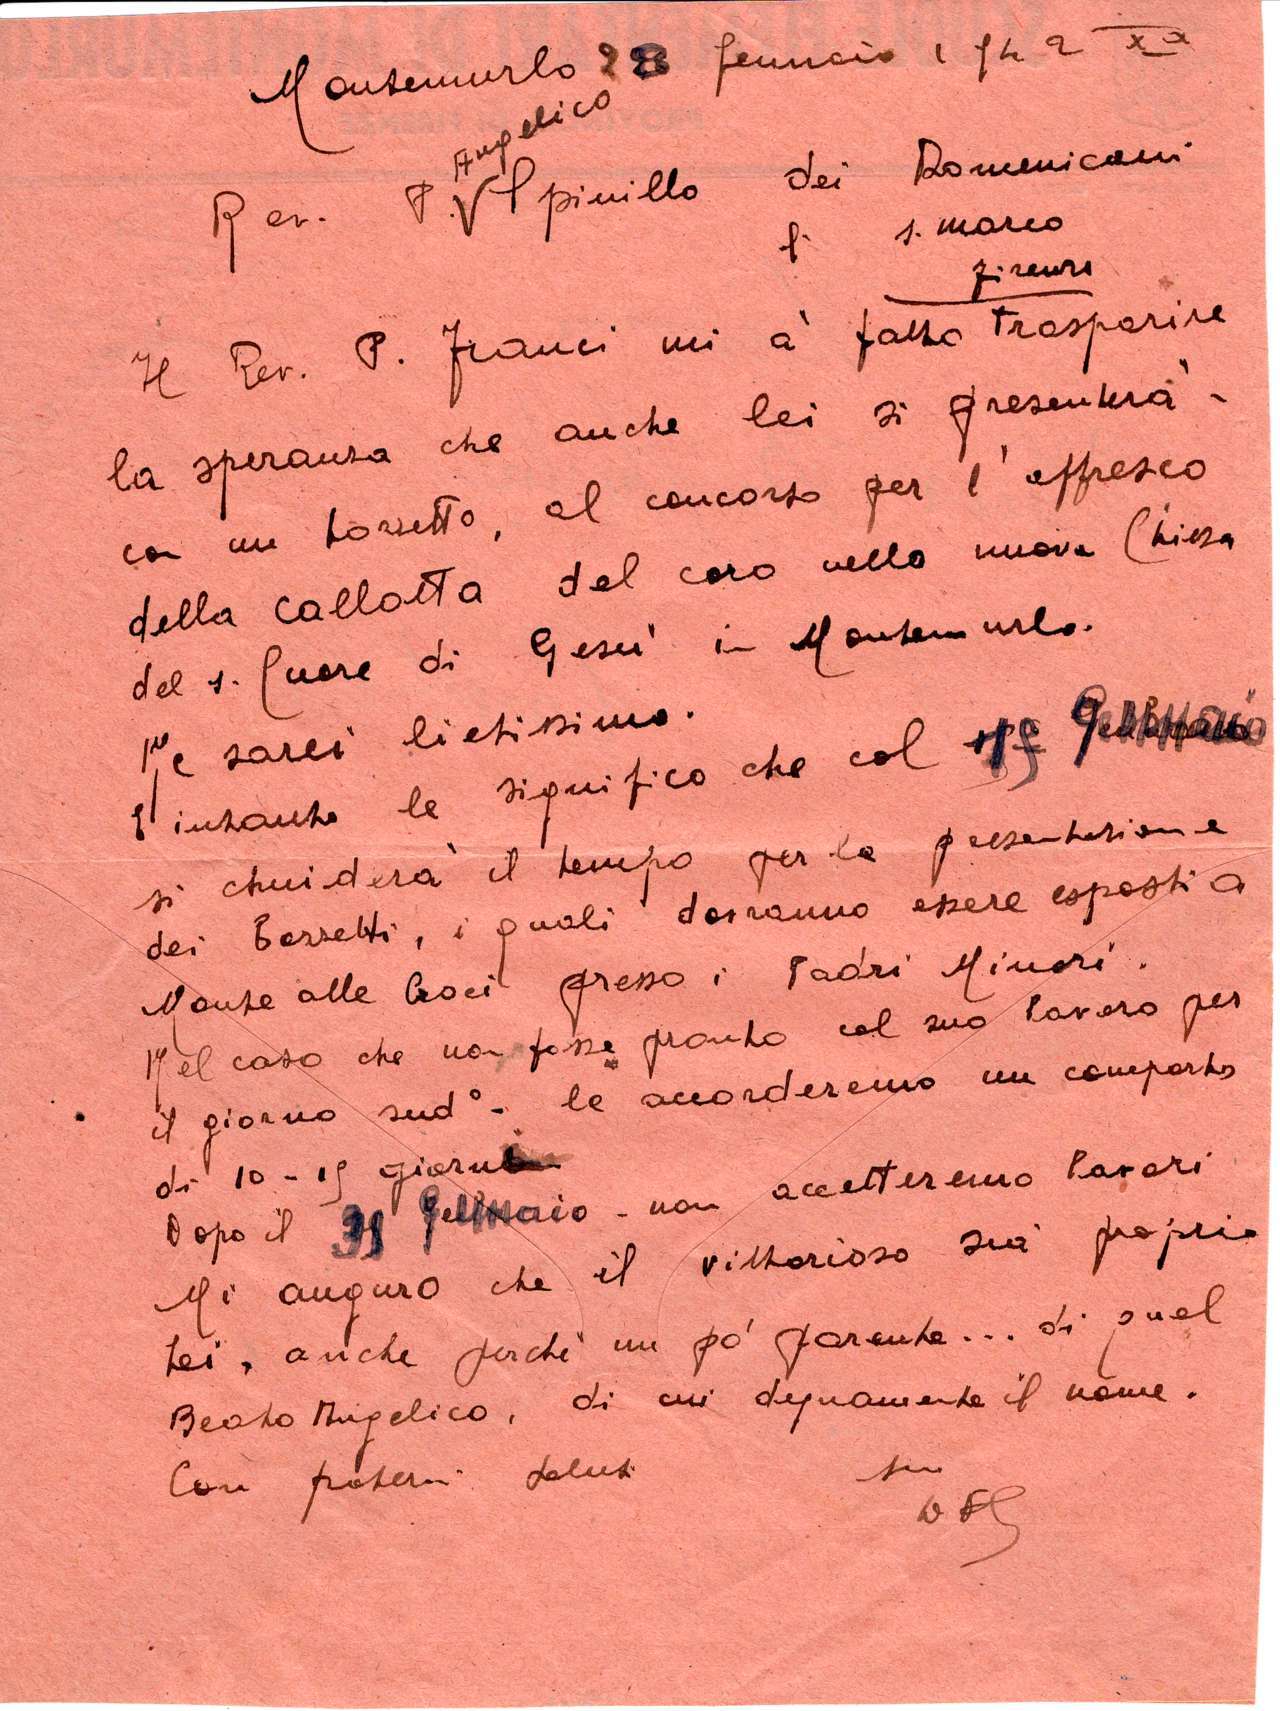 Montemurlo 28 Gennaio 1942 XXa
Angelico
Rev. P. Spinillo dei Domenicani
S. Marco
Firenze
Il Rev. P. Franci mi à fatto trasparire
la speranza che anche lei si presenterà -
con un bozzetto, al concorso per l'affresco
della callotta del coro nella nuova Chiesa
del S. Cuore di Gesù in Montemurlo.
Ne sarei lietissimo.
Intanto le significo che col Gennaio
si chiuderà il tempo per la presentazione
dei Bozzetti, i quali dovranno essere esposti a
Monte alle Croci presso i Padri Minori.
Nel caso che non fosse pronto col suo lavoro per
il giorno sud° - le accorderemo un comporto
di 10 - 15 giorni
Dopo il 31 Gennaio - non accetteremo lavori
Mi auguro che il vittorioso sia proprio
lei, anche perchè un pó parente... di quel
Beato Angelico, di cui degnamente il nome.
Con fraterni saluti suo